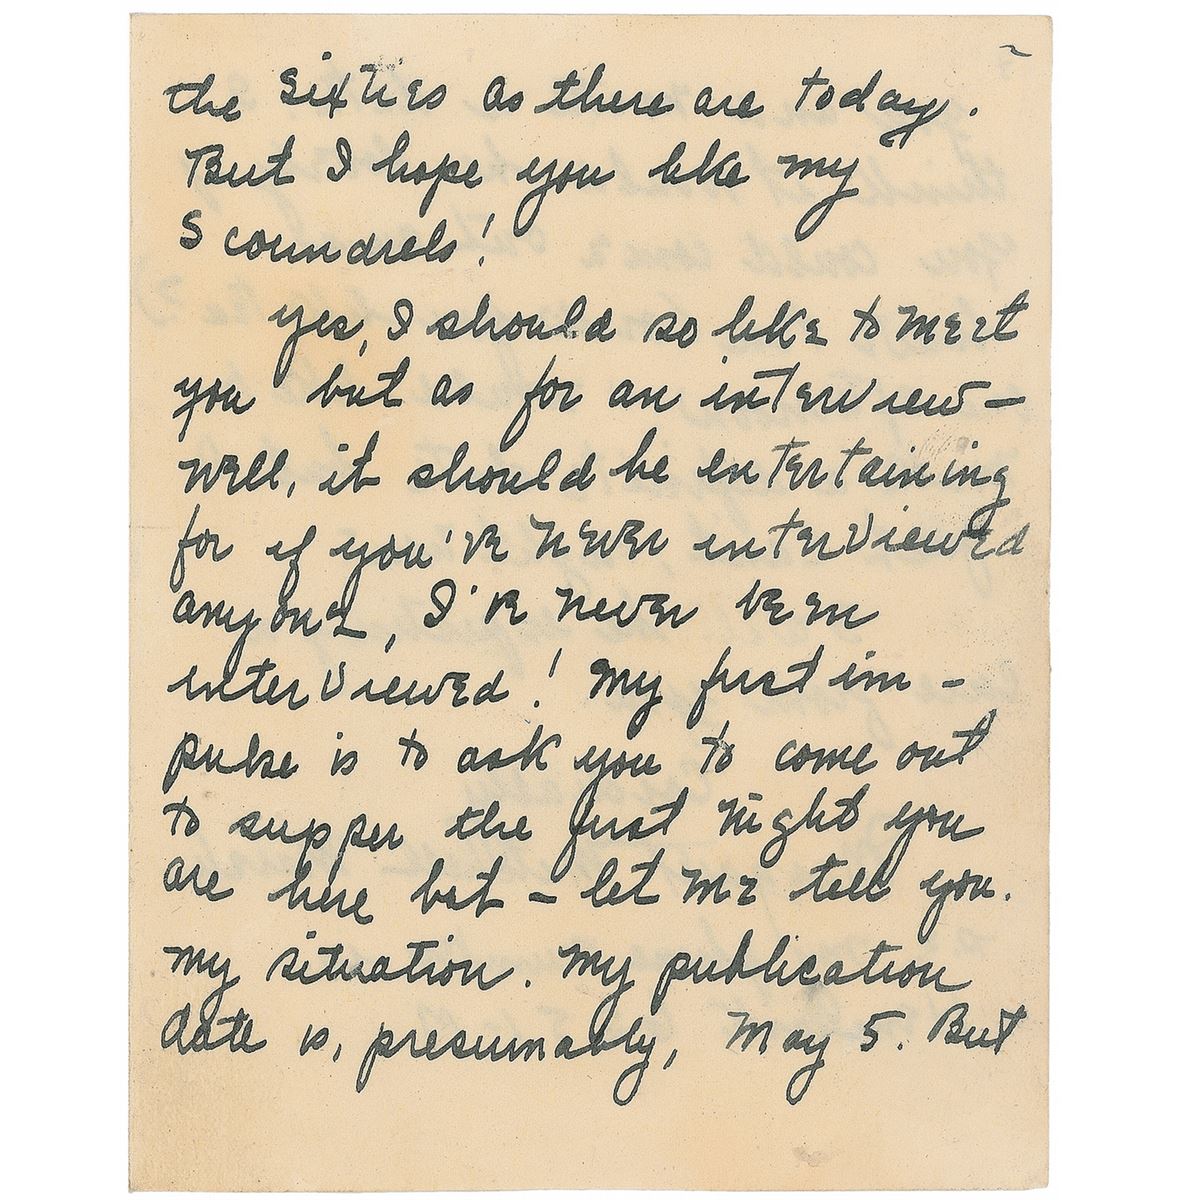 2
the Sixties as there are today.
But I hope you like my
Scoundrels!
yes, I should so like to meet
you but as for an interview—
well, it should be entertaining
for if you've never interviewed
anyone, I've never been
interviewed! My first im-
pulse is to ask you to come out
to supper the first night you
are here but — let me tell you.
my situation. My publication
date is, presumably, May 5. But